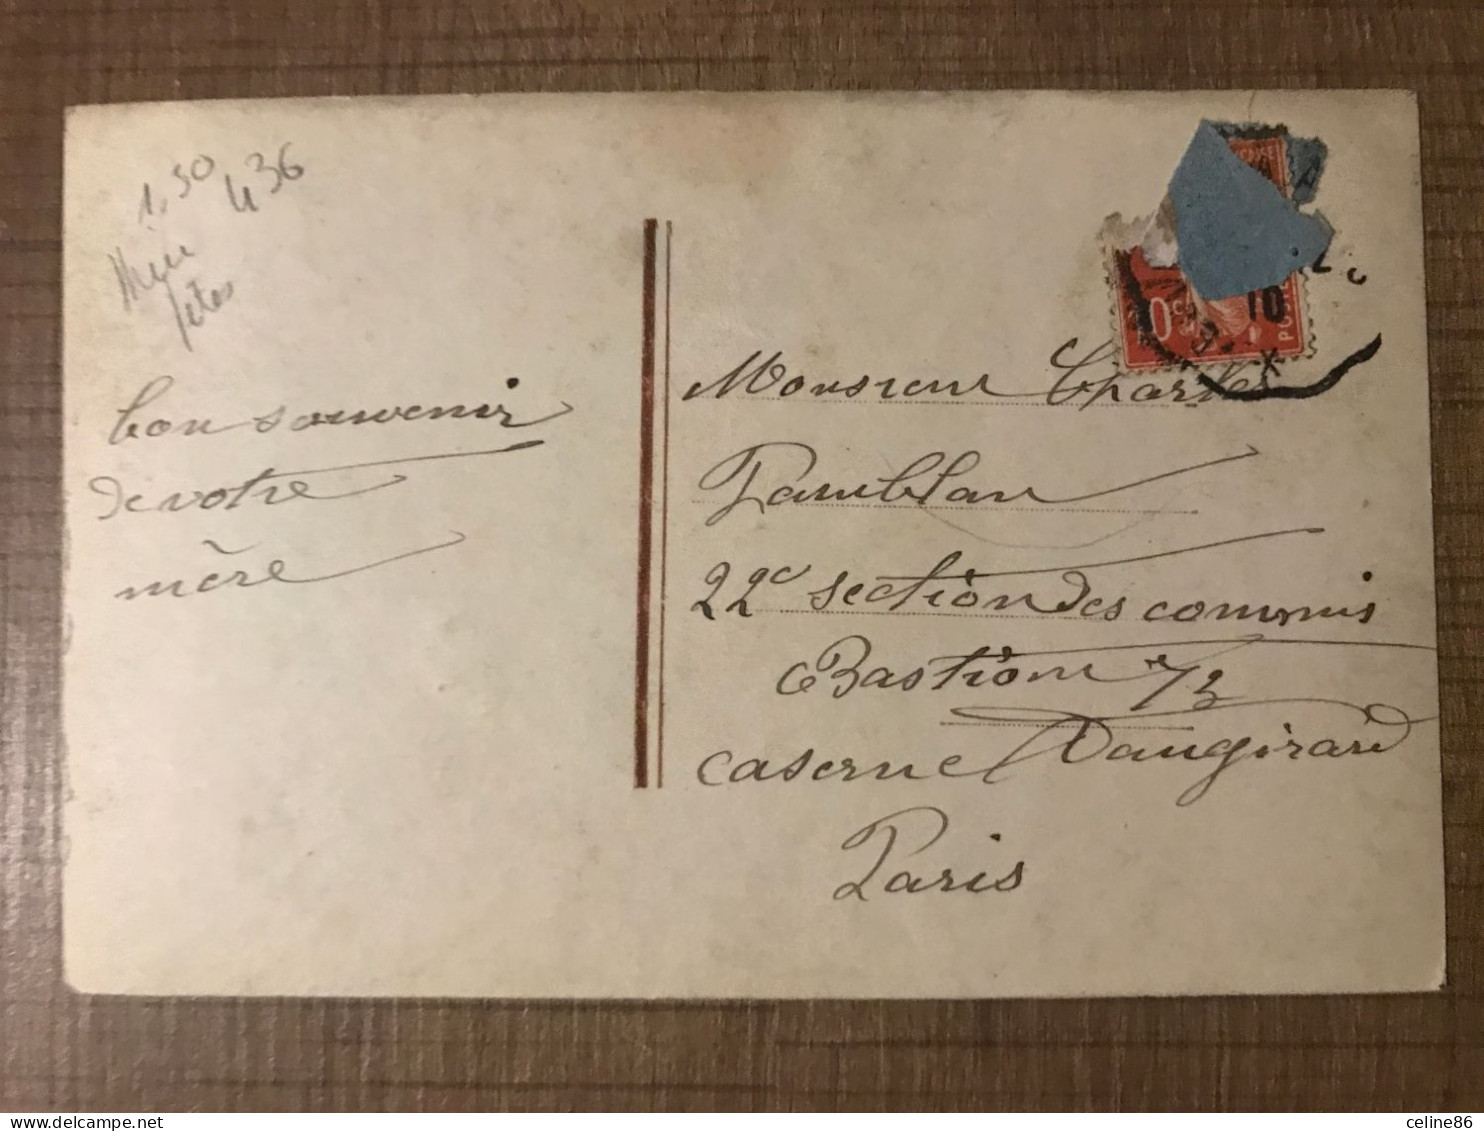 1.50
436
fêtes
bon souvenir
de votre
mère
10
Monsieur Charles
Tamblan
22e section des commis
Bastion 73
caserne Vaugirard
Paris
celine86